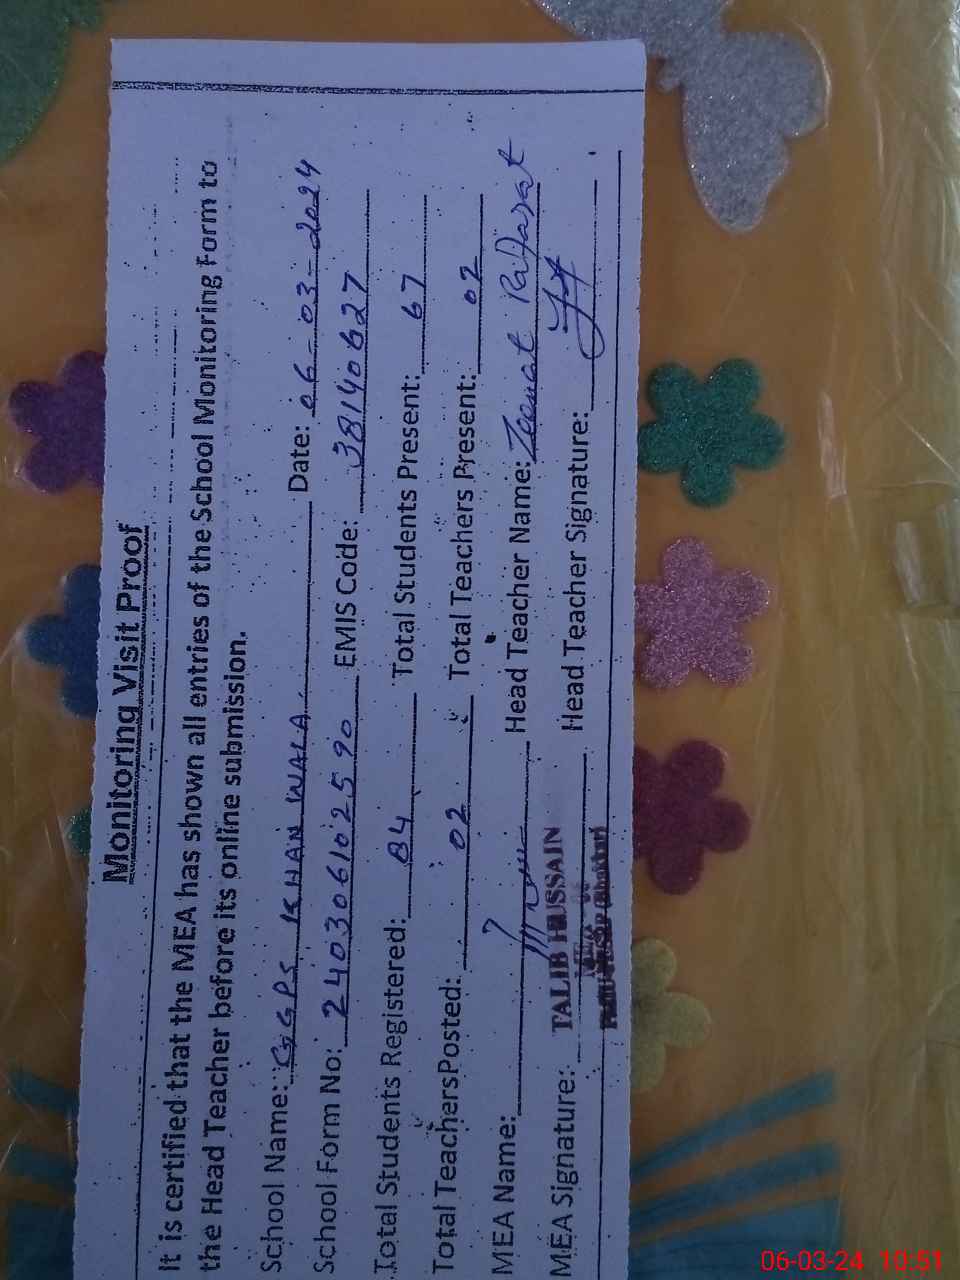 Monitoring Visit Proof
It is certified that the MEA has shown all entries of the School Monitoring Form to
the Head Teacher before its online submission.
School Name: GGPS KHAN WALA Date: 06-03-2024
School Form No: 2403061025 90 EMIS Code: 38140627
Total Students Registered: 84 Total Students Present: 67
Total TeachersPosted: 02 Total Teachers Present: 02
MEA Name: Head Teacher Name: Zeenat
MEA Signature: Head Teacher Signature:
TALIB HUSSAIN
06-03-24 10:51